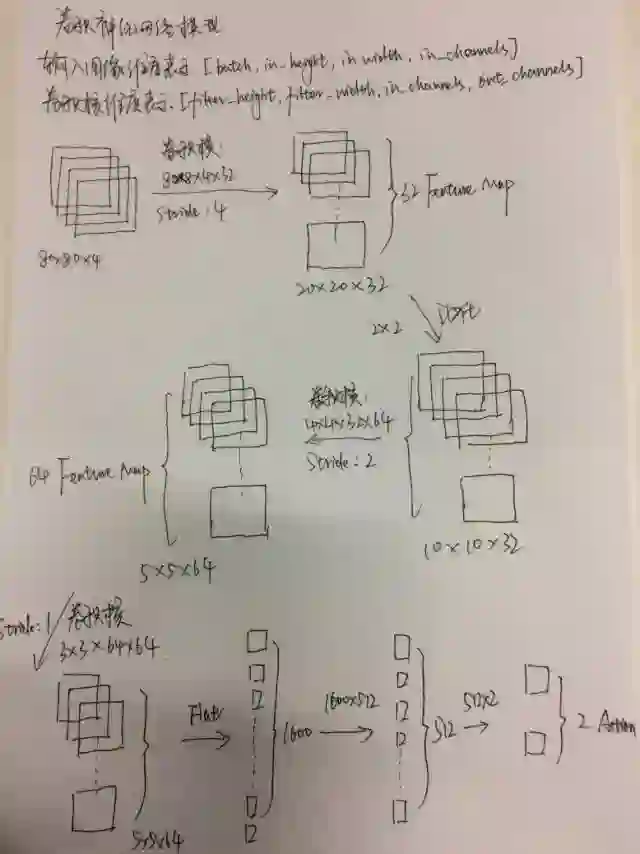 卷积神经网络模型
输入图像维度表示 [batch, in_height, in_width, in_channels]
卷积核维度表示. [filter_height, filter_width, in_channels, out_channels]
卷积核:
8x8x4x32
Stride: 4
80x80x4
32 Feature Map
20x20x32
2x2 池化
卷积核:
4x4x32x64
Stride: 2
64 Feature Map
5x5x64
10x10x32
Stride: 1 卷积核
3x3x64x64
5x5x64
1600
1600x512
512
512x2
2 Action